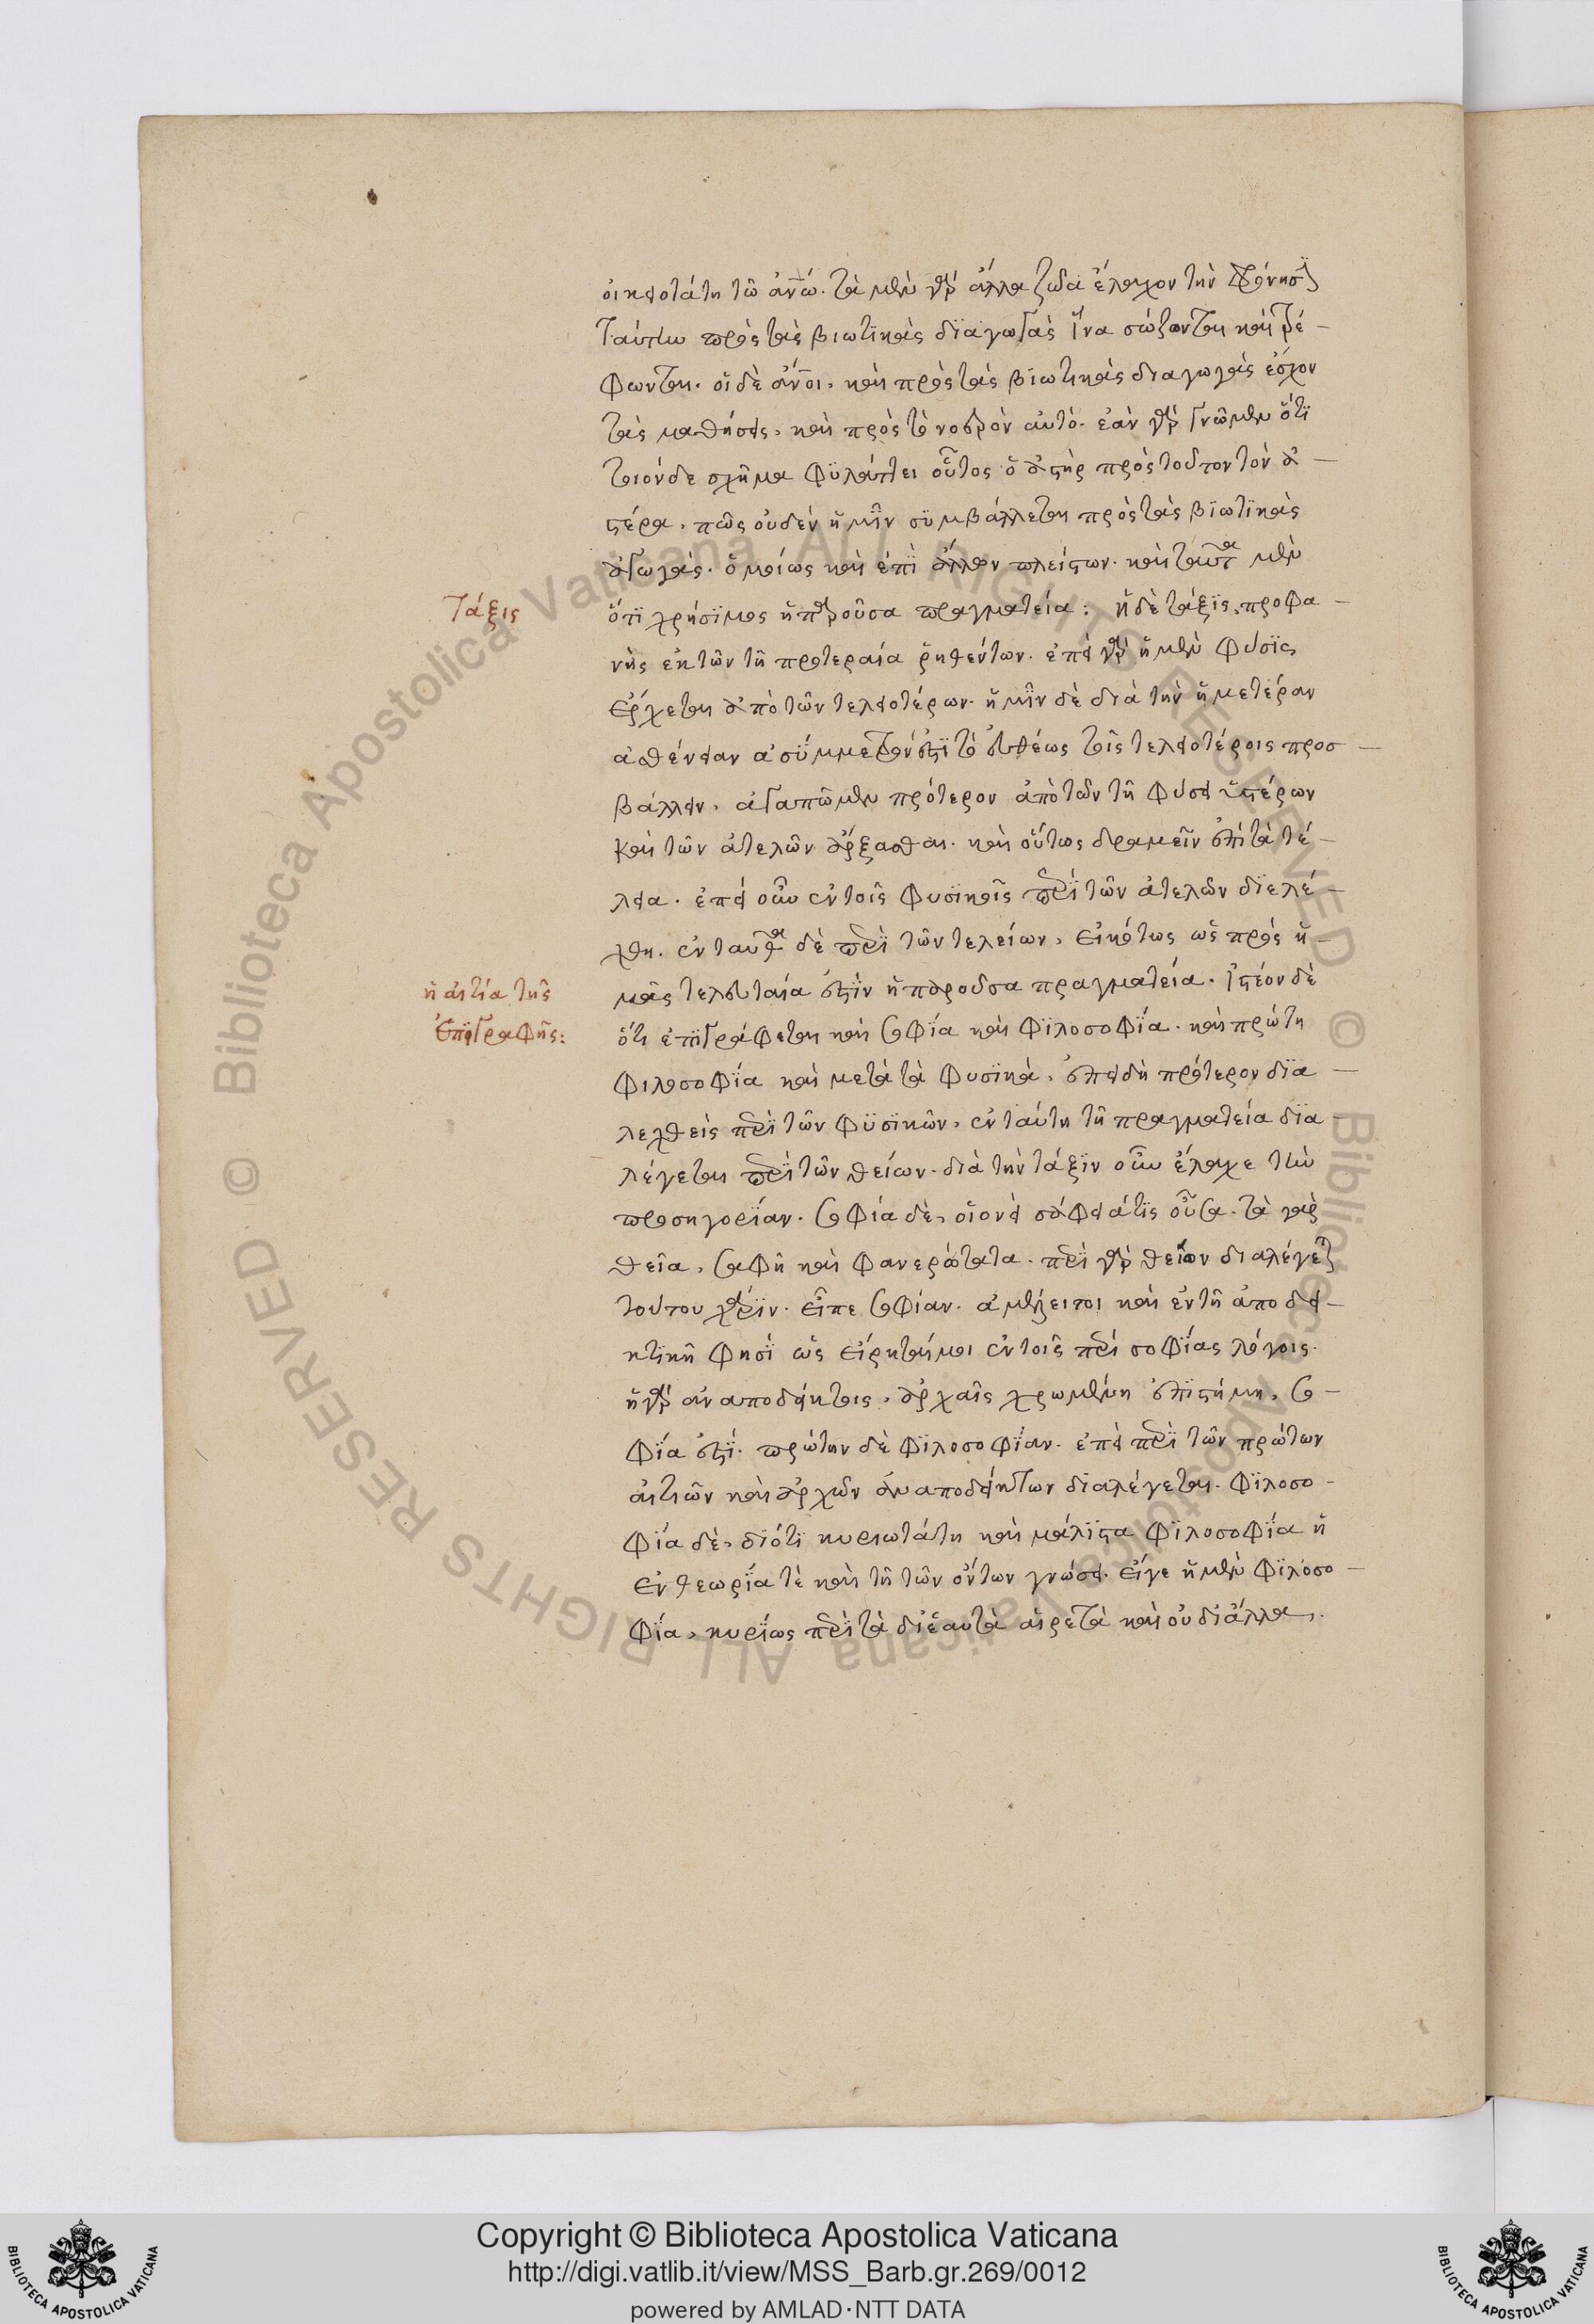 οἰκειοτάτη τῶ ἀν̅ω. τὰ μὲν γὰρ ἄλλα ζῶα ἔλαχον τὴν φρόνησιν
ταύτην πρὸς τὰς βιωτϊκὰς δϊαγωγὰς ἵνα σώζωνται καὶ τρέ-
φωνται. οἱ δὲ ἄν̅οι, καὶ πρὸς τὰς βϊωτικὰς διαγωγὰς ἔσχον
τὰς μαθήσεις, καὶ πρὸς τὸ νοερὸν αὐτό. ἐὰν γὰρ γνῶμεν ὅτϊ
τοιόνδε σχῆμα φϋλάττει οὗτος ὁ ἀστὴρ πρὸς τοῦτον τὸν ἀ-
στέρα, πῶς οὐδὲν ἡμῖν σϋμβάλλεται πρὸς τὰς βϊωτϊκὰς
ἀγωγάς. ὁμοίως καὶ ἐπῒ ἄλλων πλείστων. καὶ ταῦτα μὲν
Τάξις
ὅτι χρήσϊμος ἡ παροῦσα πραγματεία: ἡ δὲ τάξϊς, προφα-
νὴς ἐκ τῶν τῆ προτεραία ῥηθέντων. ἐπεὶ γὰρ ἡ μὲν φύσϊς
ἔρχεται ἀπὸ τῶν τελειοτέρων. ἡμῖν δὲ διὰ τὴν ἡμετέραν
ἀσθένειαν ἀσΰμμετρόν ἐστϊ τὸ εὐθέως τοῖς τελειοτέροις προσ-
βάλλειν, ἀγαπῶμεν πρότερον ἀπὸ τῶν τῆ φύσει ὑστέρων
καὶ τῶν ἀτελῶν ἄρξασθαι. καὶ οὕτως δραμεῖν ἐπὶ τὰ τέ-
λεια. ἐπεὶ οὖν ἐν τοῖς φυσϊκοῖς περῒ τῶν ἀτελῶν δϊελέ-
χθη. ἐνταῦθα δὲ περῒ τῶν τελείων, εἰκότως ὡς πρὸς ἡ-
ἡ αἰτία τῆς
ἐπϊγραφῆς:
μᾶς τελευταία ἐστῒν ἡ παροῦσα πραγματεία. ἰστέον δὲ
ὅτι ἐπϊγράφεται καὶ σοφΐα καὶ φϊλοσοφΐα. καὶ πρώτη
φιλοσοφΐα καὶ μετὰ τὰ φυσϊκά, ἐπειδὴ πρότερον δϊα-
λεχθεὶς περῒ τῶν φϋσϊκῶν, ἐν ταύτη τῆ πραγματεία δϊα-
λέγεται περῒ τῶν θείων. διὰ τὴν τάξϊν οὖν ἔλαχε τὴν
προσηγορΐαν. σοφία δὲ, οἱονεὶ σάφειά τϊς οὖσα. τὰ γὰρ
θεῖα, σαφῆ καὶ φανερώτατα. περῒ γὰρ θείων διαλέγεται
τούτου χάρϊν. εἶπε σοφίαν. ἀμέλειτοι καὶ ἐν τῆ ἀποδει-
κτϊκῆ φησῒ ὡς εἴρηταί μοι ἐν τοῖς περὶ σοφΐας λόγοις.
ἡ γὰρ ἀναποδείκτοις, ἀρχαῖς χρωμένη ἐπϊστήμη, σο-
φΐα ἐστΐ. πρώτην δὲ φϊλοσοφΐαν. ἐπεὶ περῒ τῶν πρώτων
αἰτιῶν καὶ ἀρχῶν ἀναποδείκτων δϊαλέγεται. φϊλοσο-
φΐα δὲ, δϊότϊ κυριωτάτη καὶ μάλϊστα φϊλοσοφΐα ἡ
ἐν θεωρΐα τὲ καὶ τῆ τῶν ὄντων γνώσει. εἴγε ἡ μὲν φϊλοσο-
φΐα, κυρΐως περῒ τὰ δϊ ἑαυτὰ αἱρετὰ καὶ οὐ δϊ ἄλλα.
Copyright © Biblioteca Apostolica Vaticana
http://digi.vatlib.it/view/MSS_Barb.gr.269/0012
powered by AMLAD·NTT DATA
BIBLIOTECA APOSTOLICA VATICANA
BIBLIOTECA APOSTOLICA VATICANA
© Biblioteca Apostolica Vaticana ALL RIGHTS RESERVED
© Biblioteca Apostolica Vaticana ALL RIGHTS RESERVED